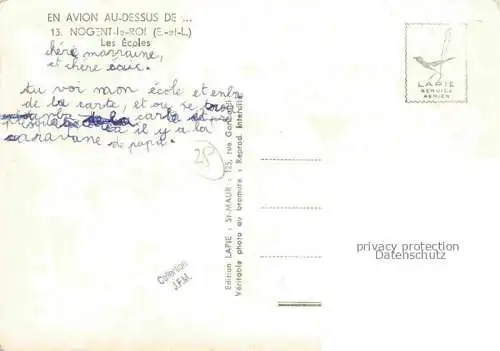 EN AVION AU-DESSUS DE ...
13. NOGENT-le-ROI (E.-et-L.)
Les Écoles
chère marraine,
et chère
tu voi mon école et
de la carte, et ou se
la carte et
il y a la
caravane de papa.
25
LAPIE
SERVICE
AERIEN
Edition LAPIE : St-MAUR : 123, rue
Véritable photo au bromure : Reprod. Interdite
Collection
J.F.M.
privacy protection
Datenschutz